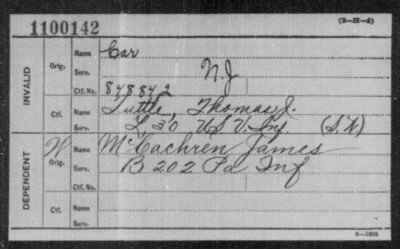 (3-21-4)
1100142
INVALID
Orig. Name Car
Serv. N.J
Ctf. No. 848842
Ctf. Name Tuttle, Thomas J.
Serv. L 30 U S V. Inf (S.W.)
DEPENDENT
Orig. Name McEachren James
Serv. B 202 Pa Inf
Ctf. No.
Ctf. Name
Serv.